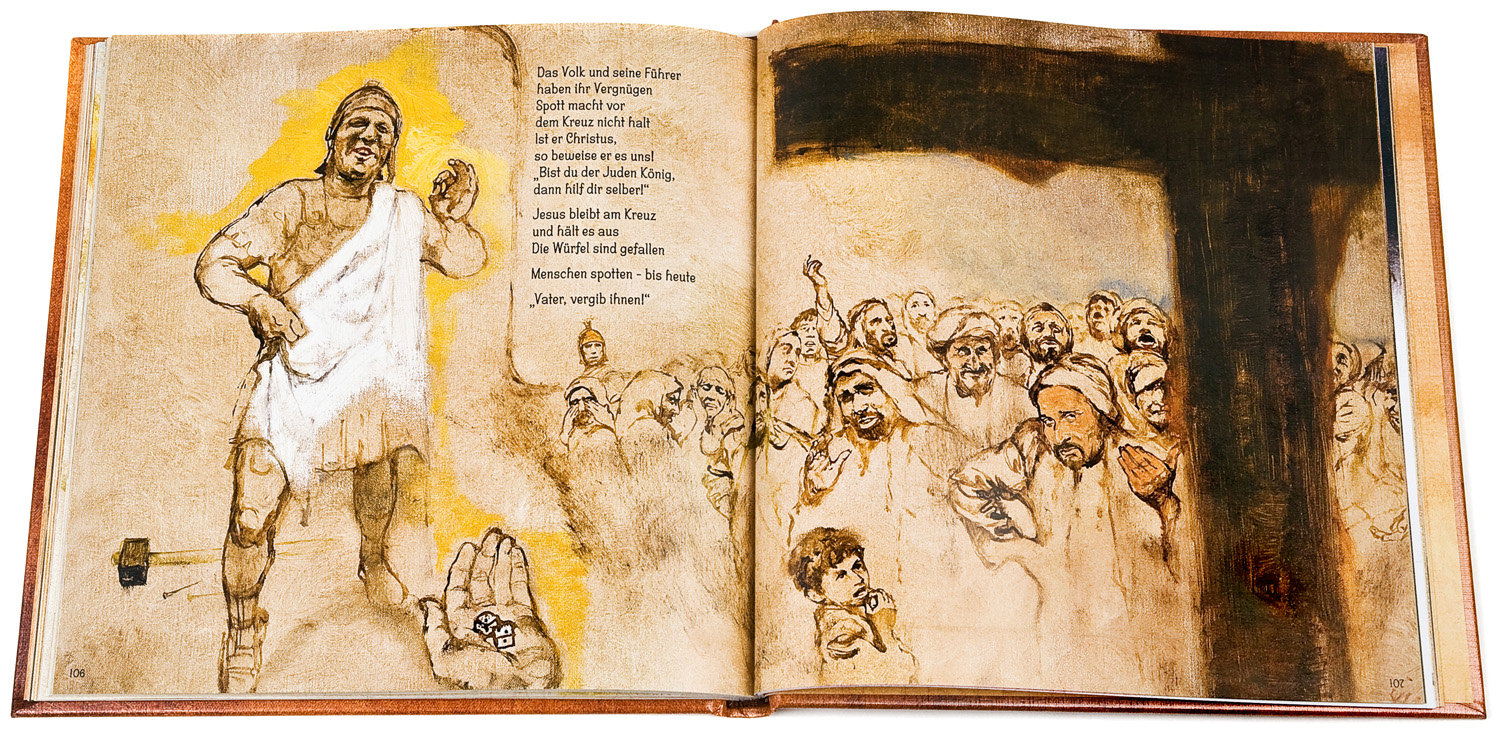 Das Volk und seine Führer
haben ihr Vergnügen
Spott macht vor
dem Kreuz nicht halt
Ist er Christus,
so beweise er es uns!
„Bist du der Juden König,
dann hilf dir selber!“
Jesus bleibt am Kreuz
und hält es aus
Die Würfel sind gefallen
Menschen spotten - bis heute
„Vater, vergib ihnen!“
106
107